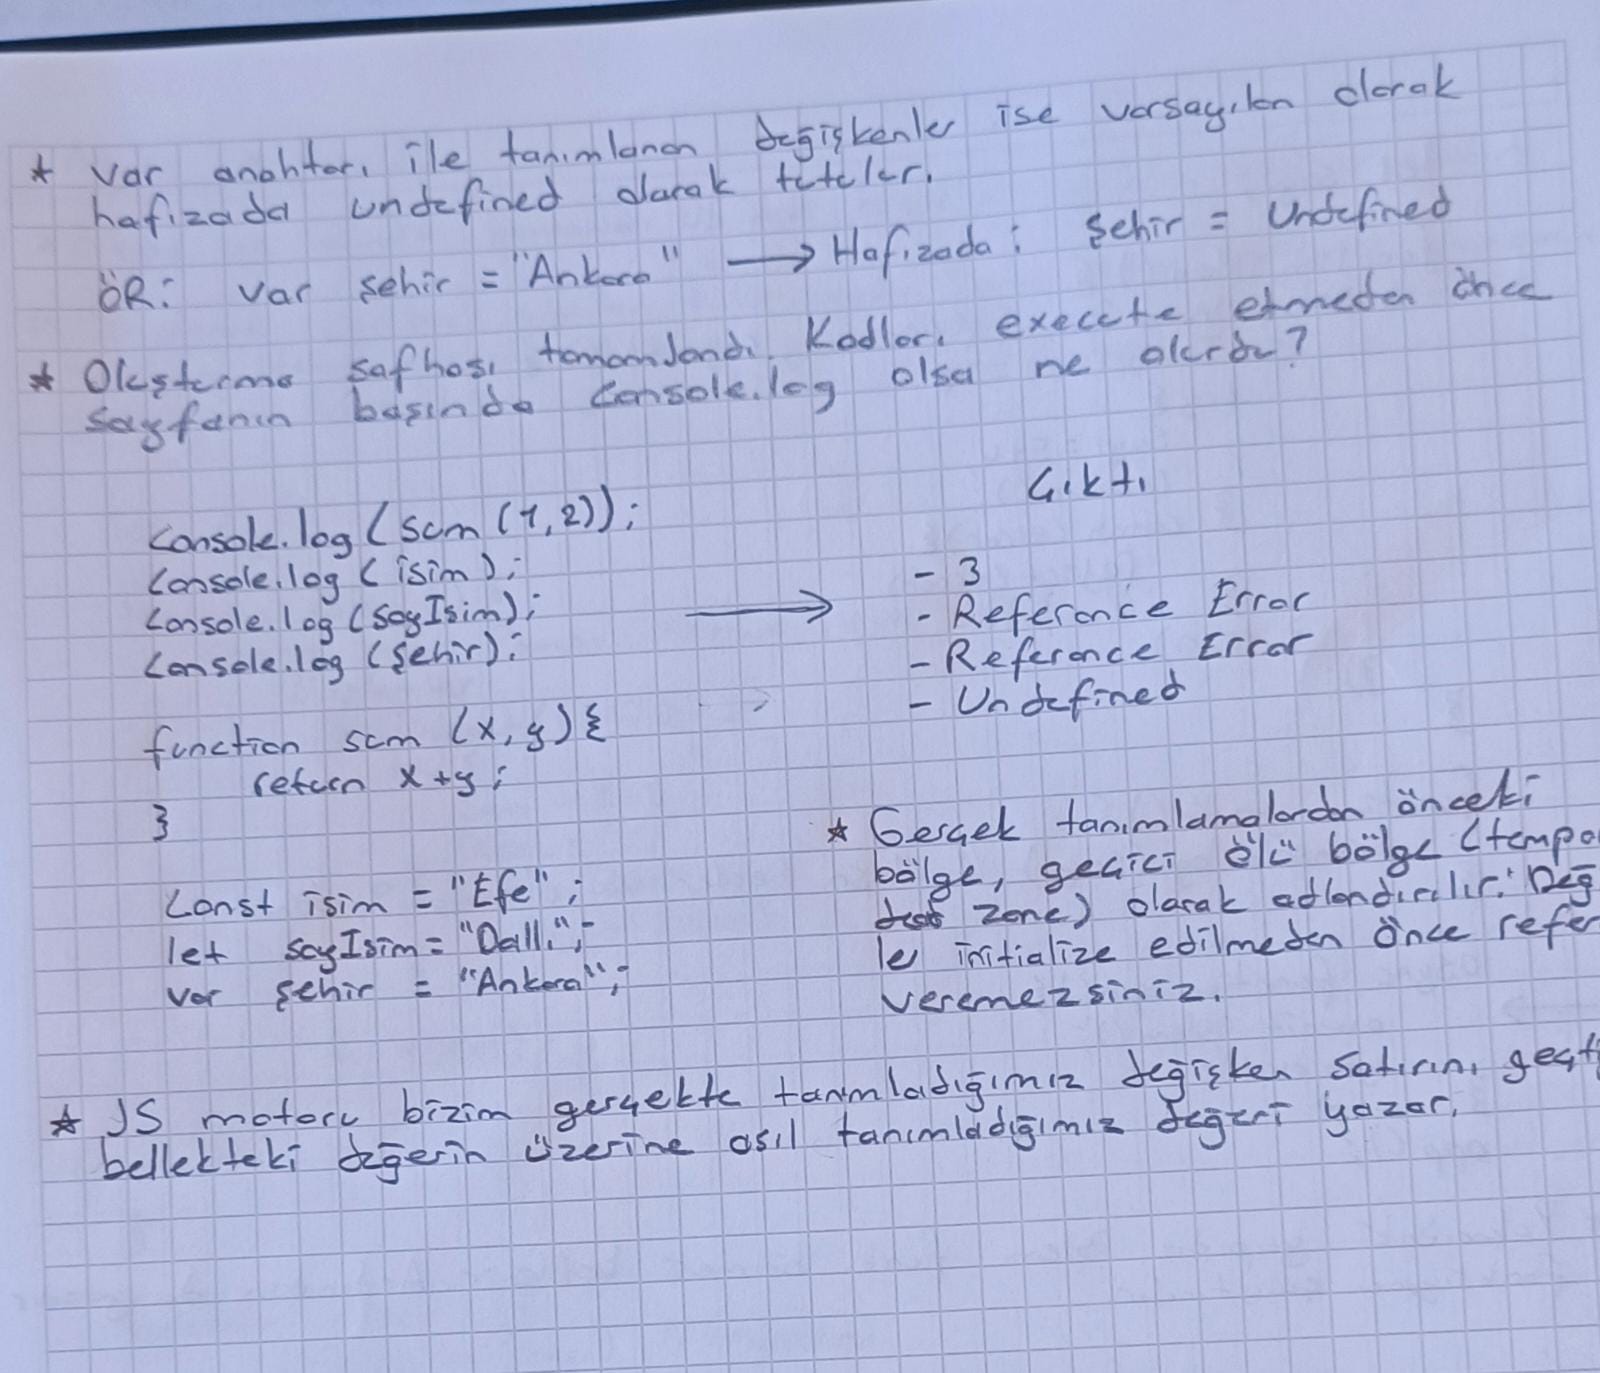 * var anahtarı ile tanımlanan değişkenler ise varsayılan olarak
hafızada undefined olarak tutulur.
ÖR: var şehir = "Ankara" → Hafızada: şehir = Undefined
* Oluşturma safhası tamamlandı. Kodları execute etmeden önce
sayfanın başında console.log olsa ne olurdu?
Çıktı
console.log (sum (1,2));
console.log ( isim );
console.log (soyIsim);
console.log (şehir);
→
- 3
- Reference Error
- Reference Error
- Undefined
function sum (x, y) {
return x+y;
}
const isim = "Efe";
let soyIsim = "Dallı";
var şehir = "Ankara";
* Gerçek tanımlamalardan önceki
bölge, geçici ölü bölge (tempo
zone) olarak adlandırılır. Değ
le initialize edilmeden önce refer
veremezsiniz.
* JS motoru bizim gerçekte tanımladığımız değişken satırını geçt
bellekteki değerin üzerine asıl tanımladığımız değeri yazar.